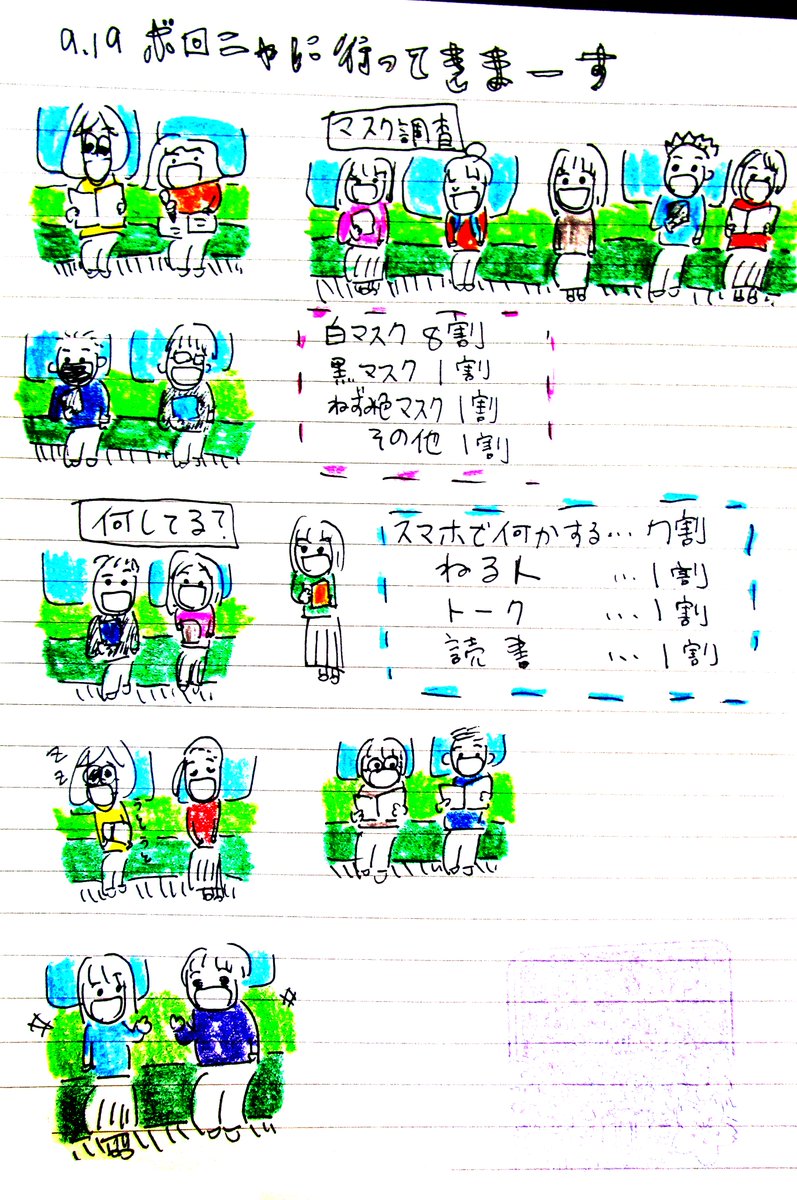 9.19 ボローニャに行ってきまーす
マスク調査
白マスク 8割
黒マスク 1割
ねずみ色マスク 1割
その他 1割
何してる？
スマホで何かする… 7割
ねる人 … 1割
トーク … 1割
読書 … 1割
zz
うとうと